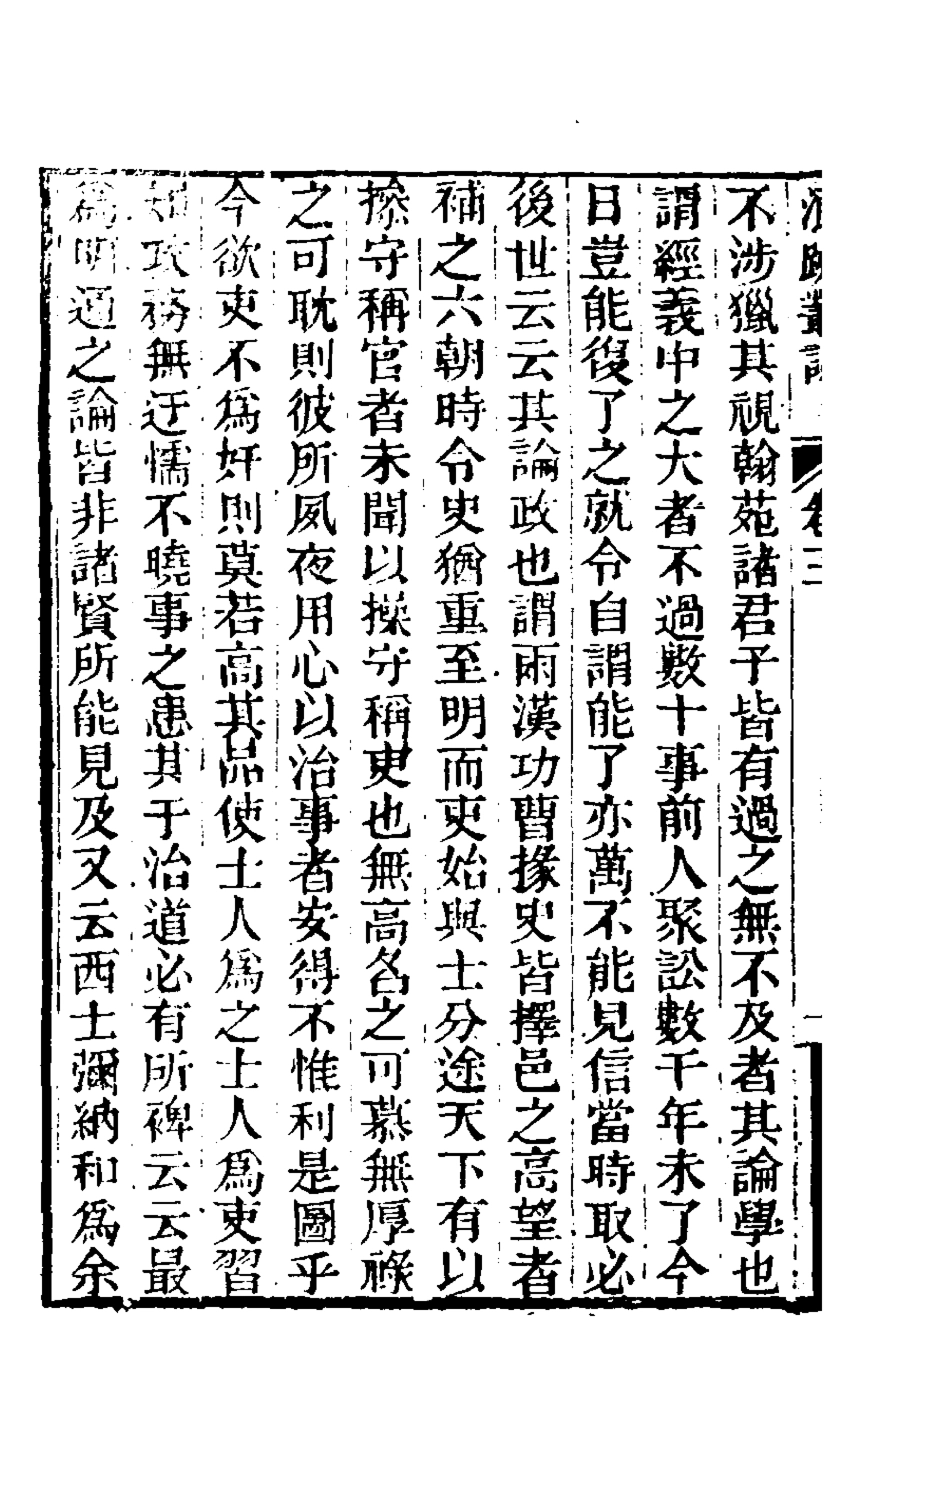 卷三
不涉獵其視翰苑諸君子皆有過之無不及者其論學也
謂經義中之大者不過數十事前人聚訟數千年未了今
日豈能復了之就令自謂能了亦萬不能見信當時取必
後世云云其論政也謂兩漢功曹掾史皆擇邑之高望者
補之六朝時令史猶重至明而吏始與士分途天下有以
操守稱官者未聞以操守稱吏也無高名之可慕無厚祿
之可耽則彼所夙夜用心以治事者安得不惟利是圖乎
今欲吏不爲奸則莫若高其品使士人爲之士人爲吏習
知政務無迂懦不曉事之患其于治道必有所裨云云最
爲明通之論皆非諸賢所能見及又云西士彌納和爲余